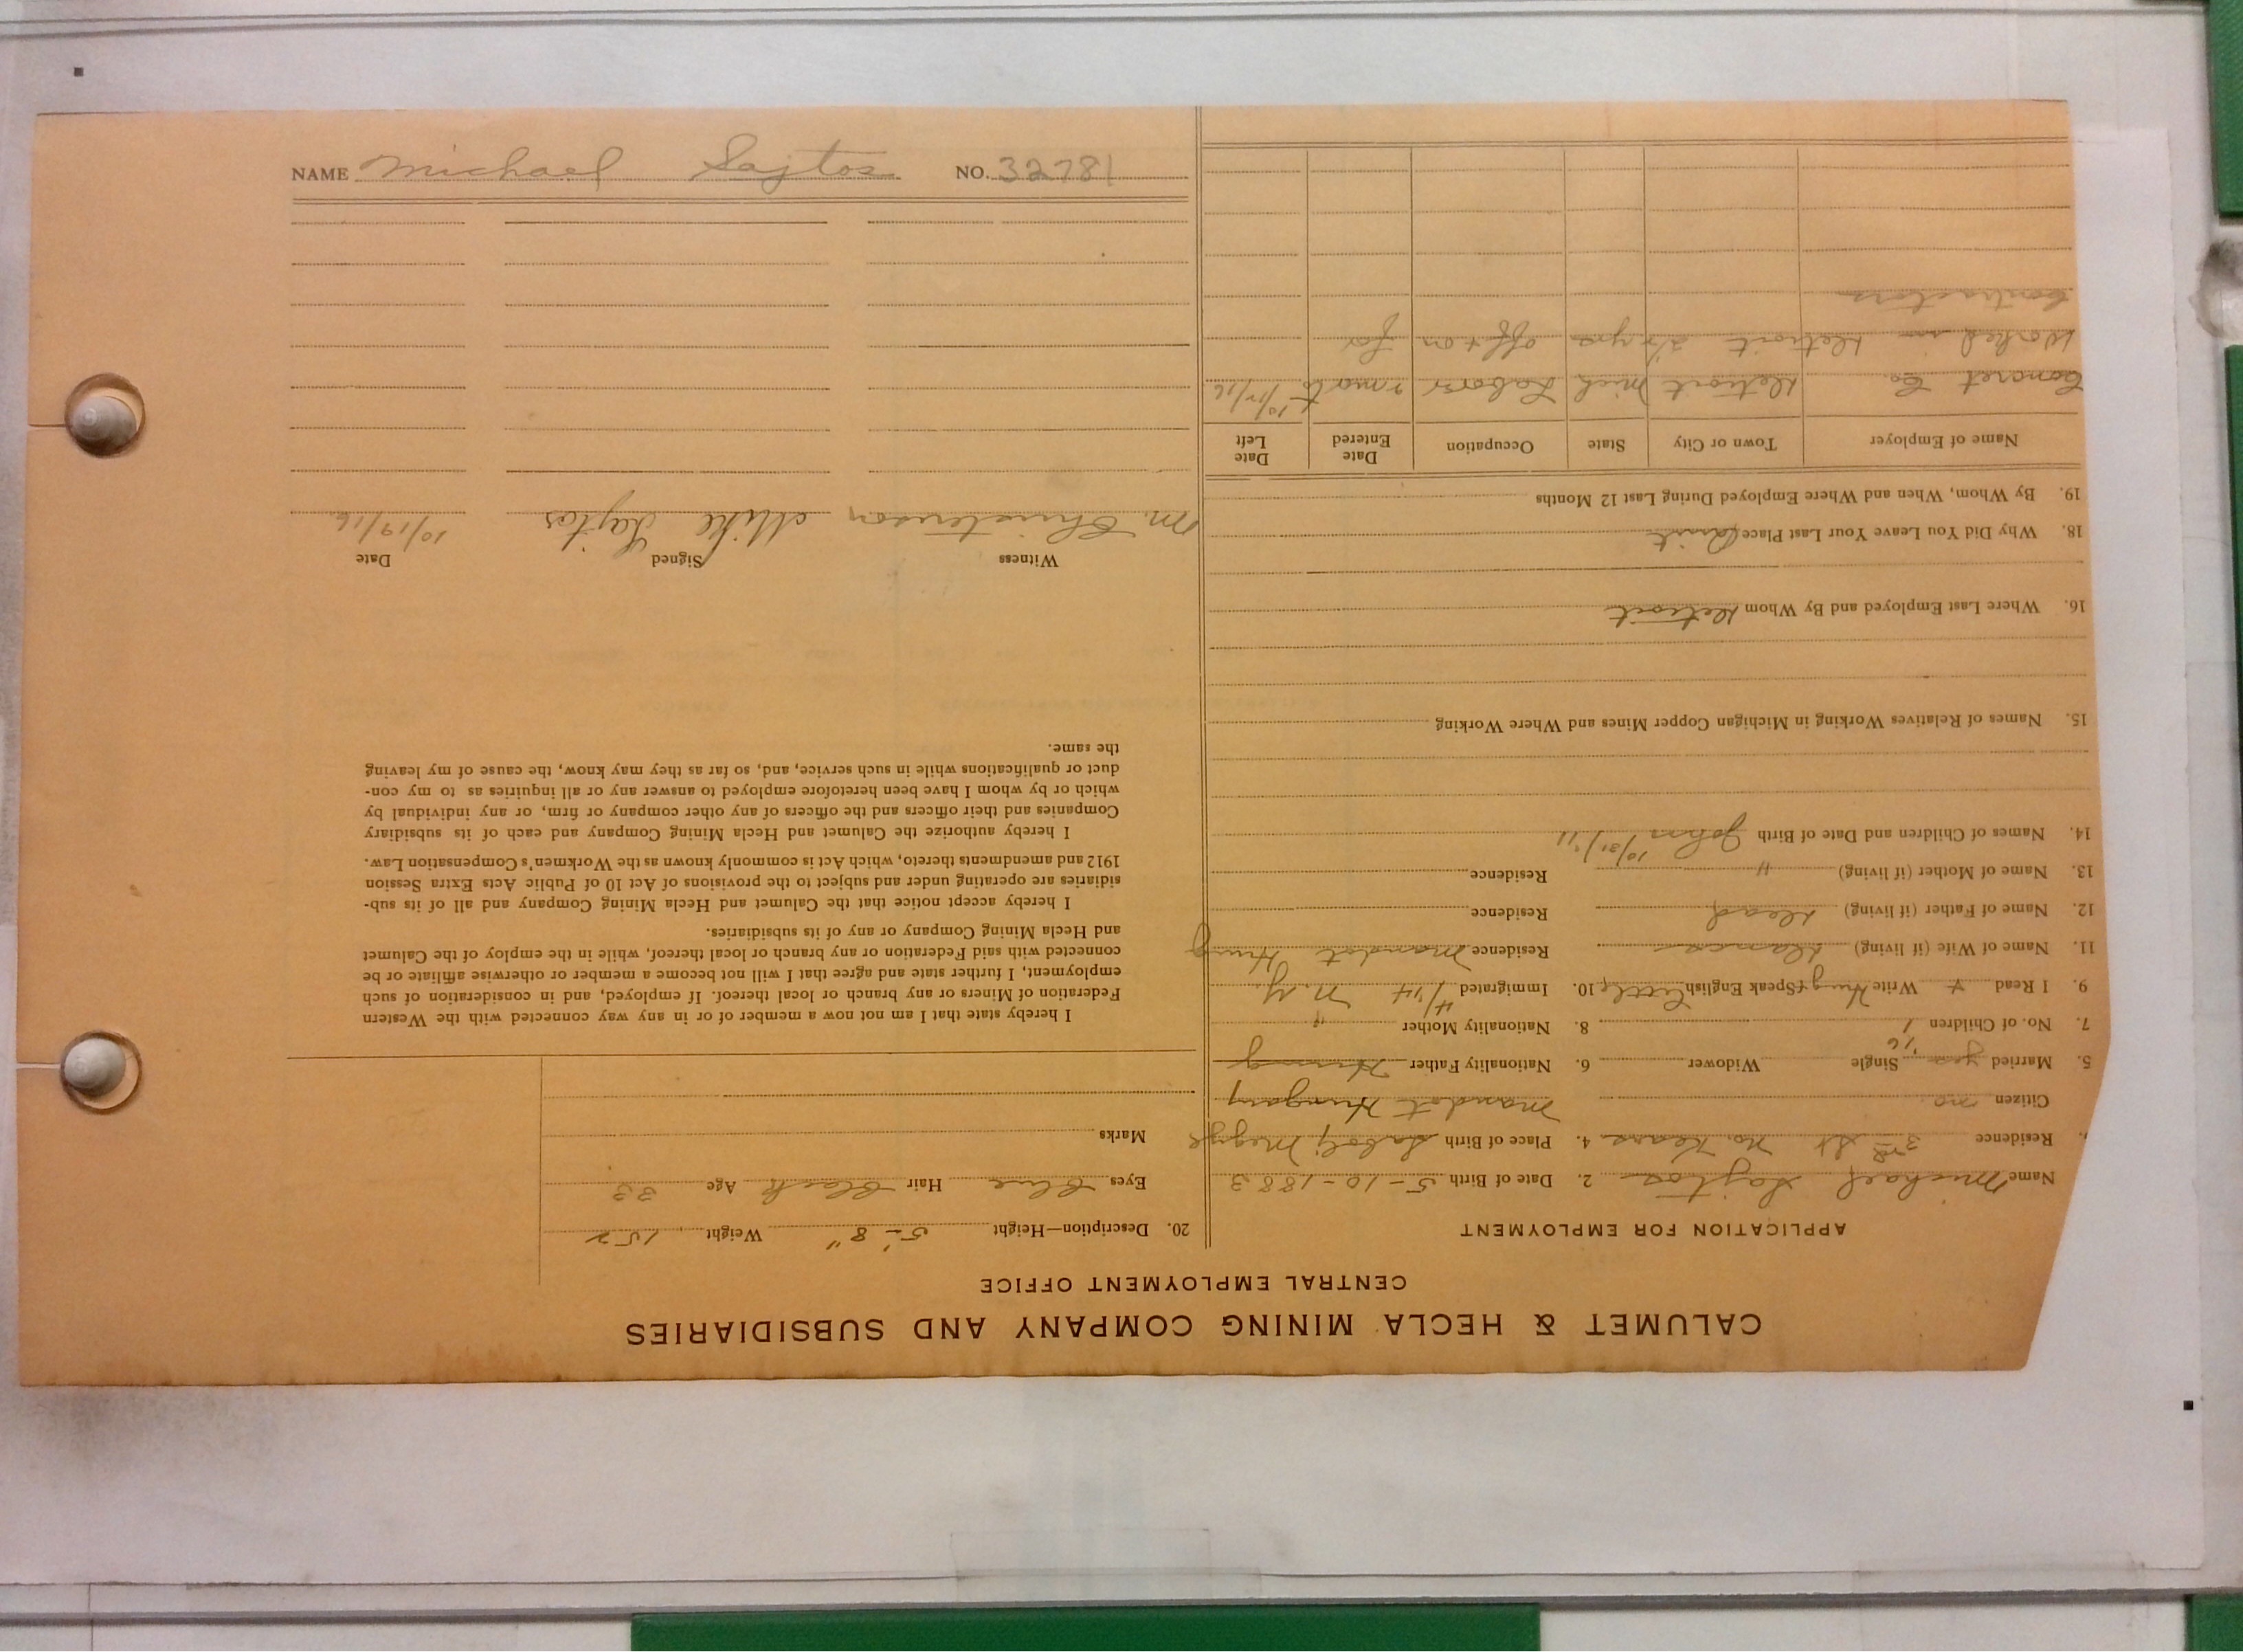 NAME Michael Sajtos NO. 32781
CALUMET & HECLA MINING COMPANY AND SUBSIDIARIES
CENTRAL EMPLOYMENT OFFICE
APPLICATION FOR EMPLOYMENT
Name Michael Sajtos 2. Date of Birth 5-10-1883
Residence 3rd St No. Kears 4. Place of Birth Saboly Megye
Citizen no Mandot Hungary
5. Married yes '16 Single Widower 6. Nationality Father Hung
7. No. of Children 1 8. Nationality Mother "
9. I Read + Write Hung + Speak English Little 10. Immigrated 4/'14 N.Y.
11. Name of Wife (if living) Residence Mandot Hung
12. Name of Father (if living) Dead Residence
13. Name of Mother (if living) " Residence
14. Names of Children and Date of Birth John 10/31/'11
15. Names of Relatives Working in Michigan Copper Mines and Where Working
16. Where Last Employed and By Whom Detroit
18. Why Did You Leave Your Last Place Quit
19. By Whom, When and Where Employed During Last 12 Months
Name of Employer Town or City State Occupation Date Entered Date Left
Concret Co. Detroit Mich Labor 2 mo to 10/17/16
Worked in Detroit 2½ yrs off + on for
Contractors
20. Description—Height 5'-8" Weight 152
Eyes Blue Hair Black Age 33
Marks
I hereby state that I am not now a member of or in any way connected with the Western
Federation of Miners or any branch or local thereof. If employed, and in consideration of such
employment, I further state and agree that I will not become a member or otherwise affiliate or be
connected with said Federation or any branch or local thereof, while in the employ of the Calumet
and Hecla Mining Company or any of its subsidiaries.
I hereby accept notice that the Calumet and Hecla Mining Company and all of its sub-
sidiaries are operating under and subject to the provisions of Act 10 of Public Acts Extra Session
1912 and amendments thereto, which Act is commonly known as the Workmen's Compensation Law.
I hereby authorize the Calumet and Hecla Mining Company and each of its subsidiary
Companies and their officers and the officers of any other company or firm, or any individual by
which or by whom I have been heretofore employed to answer any or all inquiries as to my con-
duct or qualifications while in such service, and, so far as they may know, the cause of my leaving
the same.
Witness Signed Date
M. Christenson Mike Sajtos 10/19/16